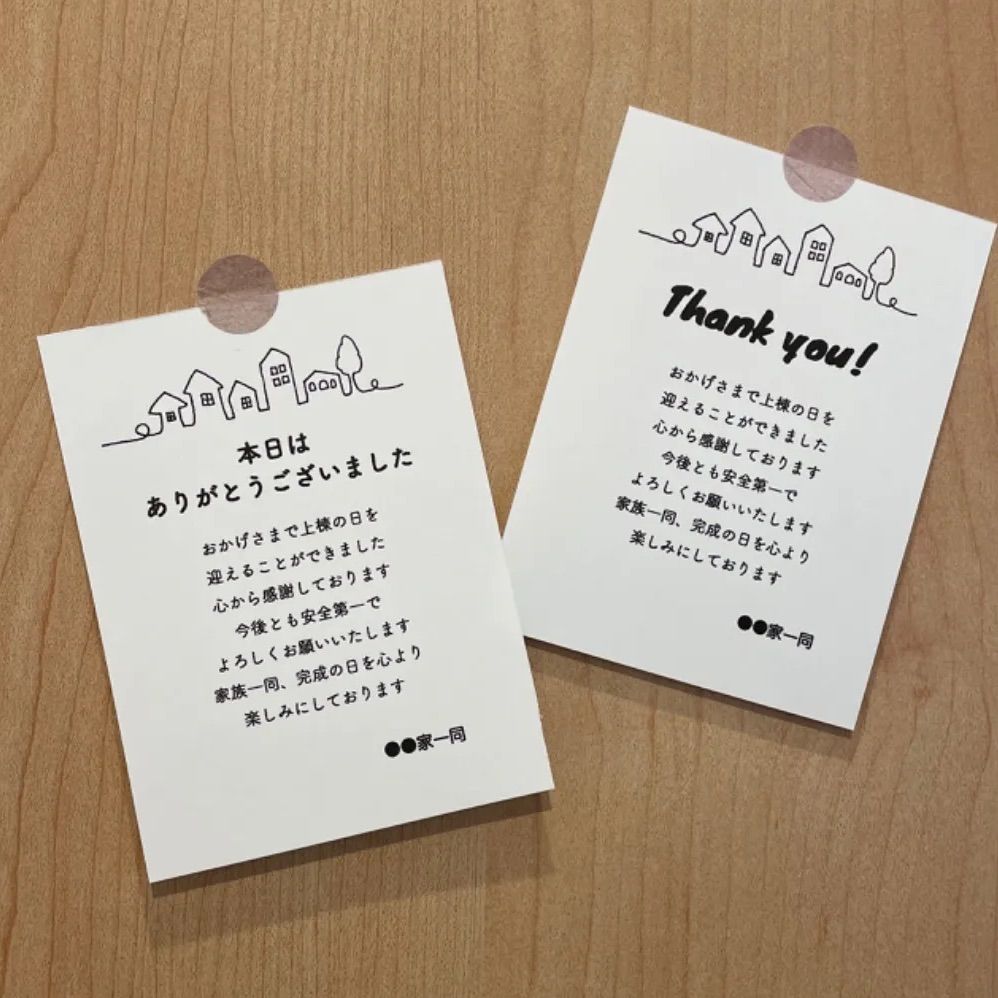 本日は
ありがとうございました
おかげさまで上棟の日を
迎えることができました
心から感謝しております
今後とも安全第一で
よろしくお願いいたします
家族一同、完成の日を心より
楽しみにしております
●●家一同
Thank you!
おかげさまで上棟の日を
迎えることができました
心から感謝しております
今後とも安全第一で
よろしくお願いいたします
家族一同、完成の日を心より
楽しみにしております
●●家一同